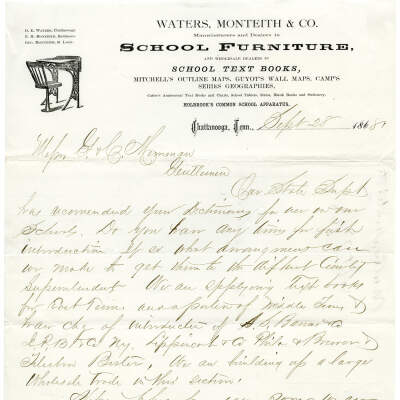 WATERS, MONTEITH & CO.
Manufacturers and Dealers in
SCHOOL FURNITURE,
AND WHOLESALE DEALERS IN
SCHOOL TEXT BOOKS,
MITCHELL'S OUTLINE MAPS, GUYOT'S WALL MAPS, CAMP'S
SERIES GEOGRAPHIES,
HOLBROOK'S COMMON SCHOOL APPARATUS.
Chattanooga, Tenn., Sept 28 1868
Messrs G & C Merriman
Gentlemen
Our State Supt
has recomended your Dictionary for use in our
Schools. Do you have any terms for first
introduction If so what arrangement can
we make to get them to the different County
Superintendent We are supplying text books
for East Tenn and a portion of Middle Tenn &
have chg of introduction of A. S. Barnes &
Co Ny, Lippincott & Co Phila & Brewer &
Tileston Boston, We are building up a large
Wholesale trade in this section.